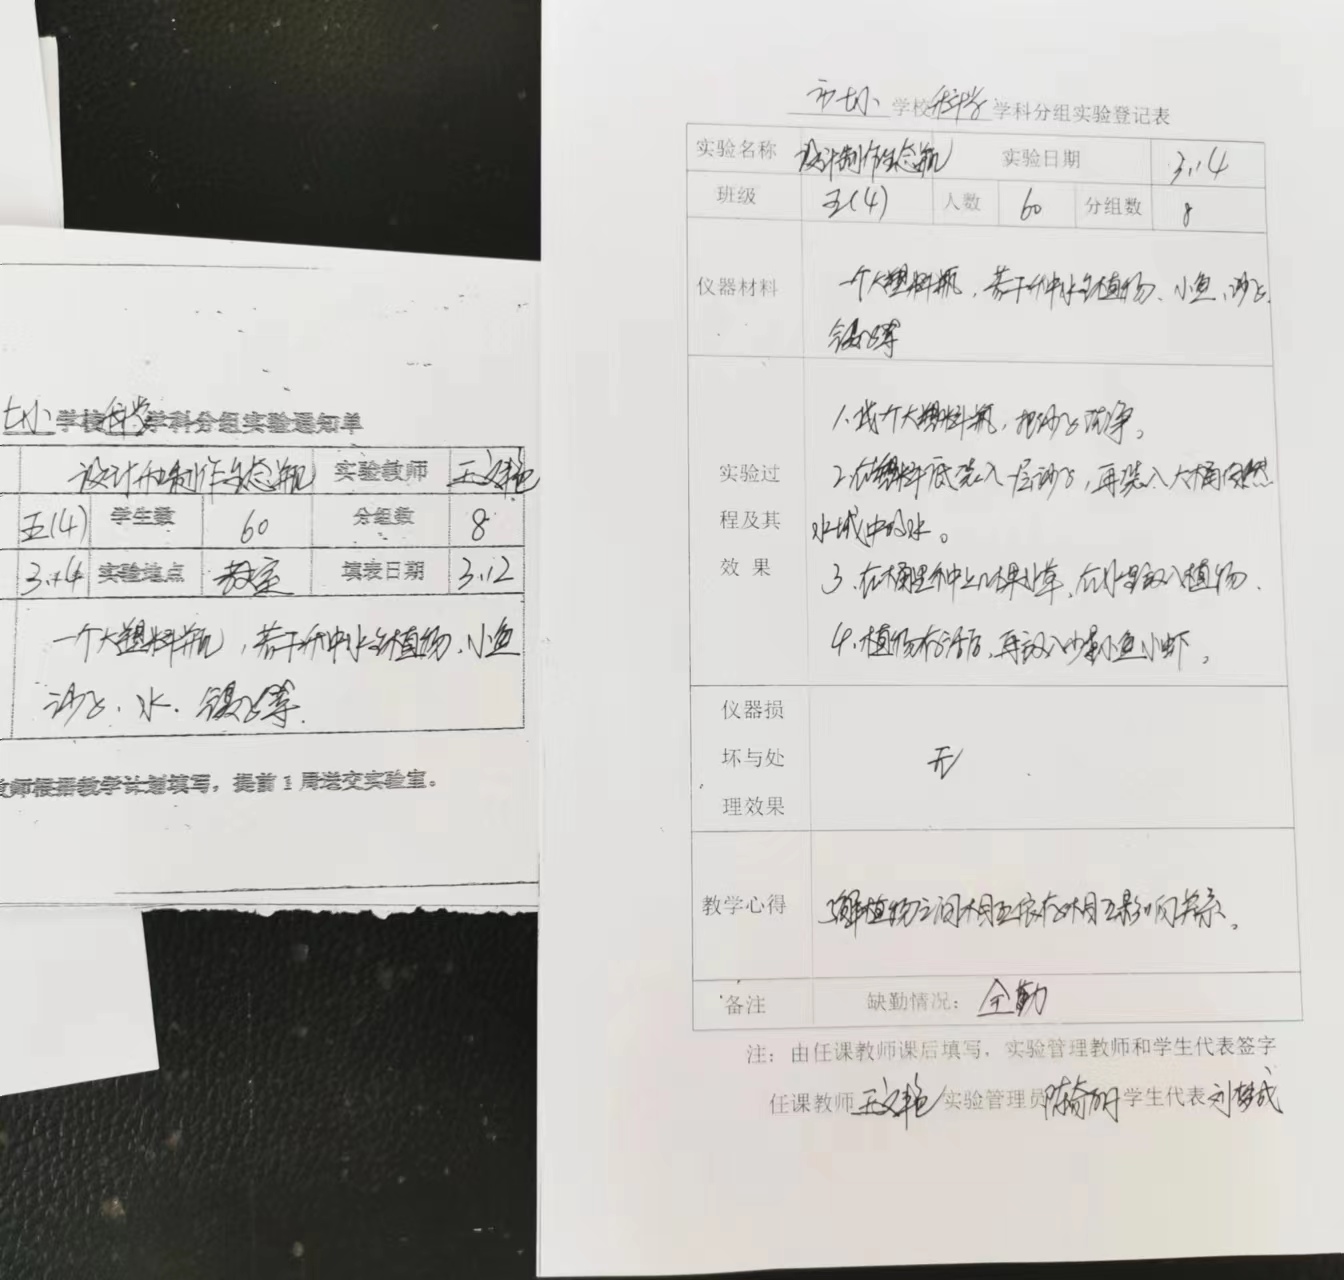 七小学校科学学科分组实验通知单
设计和制作生态瓶 实验教师 王文艳
五(4) 学生数 60 分组数 8
3.14 实验地点 教室 填表日期 3.12
一个大塑料瓶，若干种水生植物、小鱼
沙子、水、镊子等
教师根据教学计划填写，提前1周送交实验室。
市七小学校科学学科分组实验登记表
实验名称 设计制作生态瓶 实验日期 3.14
班级 五(4) 人数 60 分组数 8
仪器材料 一个大塑料瓶，若干种水生植物、小鱼、沙子、
镊子等
实验过
程及其
效 果
1.找个大塑料瓶，把沙子洗净。
2.在塑料底装入一层沙子，再装入大桶自然
水域中的水。
3.在桶里种上几棵水草，在水里放入植物.
4.植物存活后，再放入少量小鱼小虾。
仪器损
坏与处
理效果
无
教学心得 植物之间相互依存相互影响关系。
备注 缺勤情况：全勤
注：由任课教师课后填写，实验管理教师和学生代表签字
任课教师 王文艳 实验管理员 陈奇明 学生代表 刘梦成